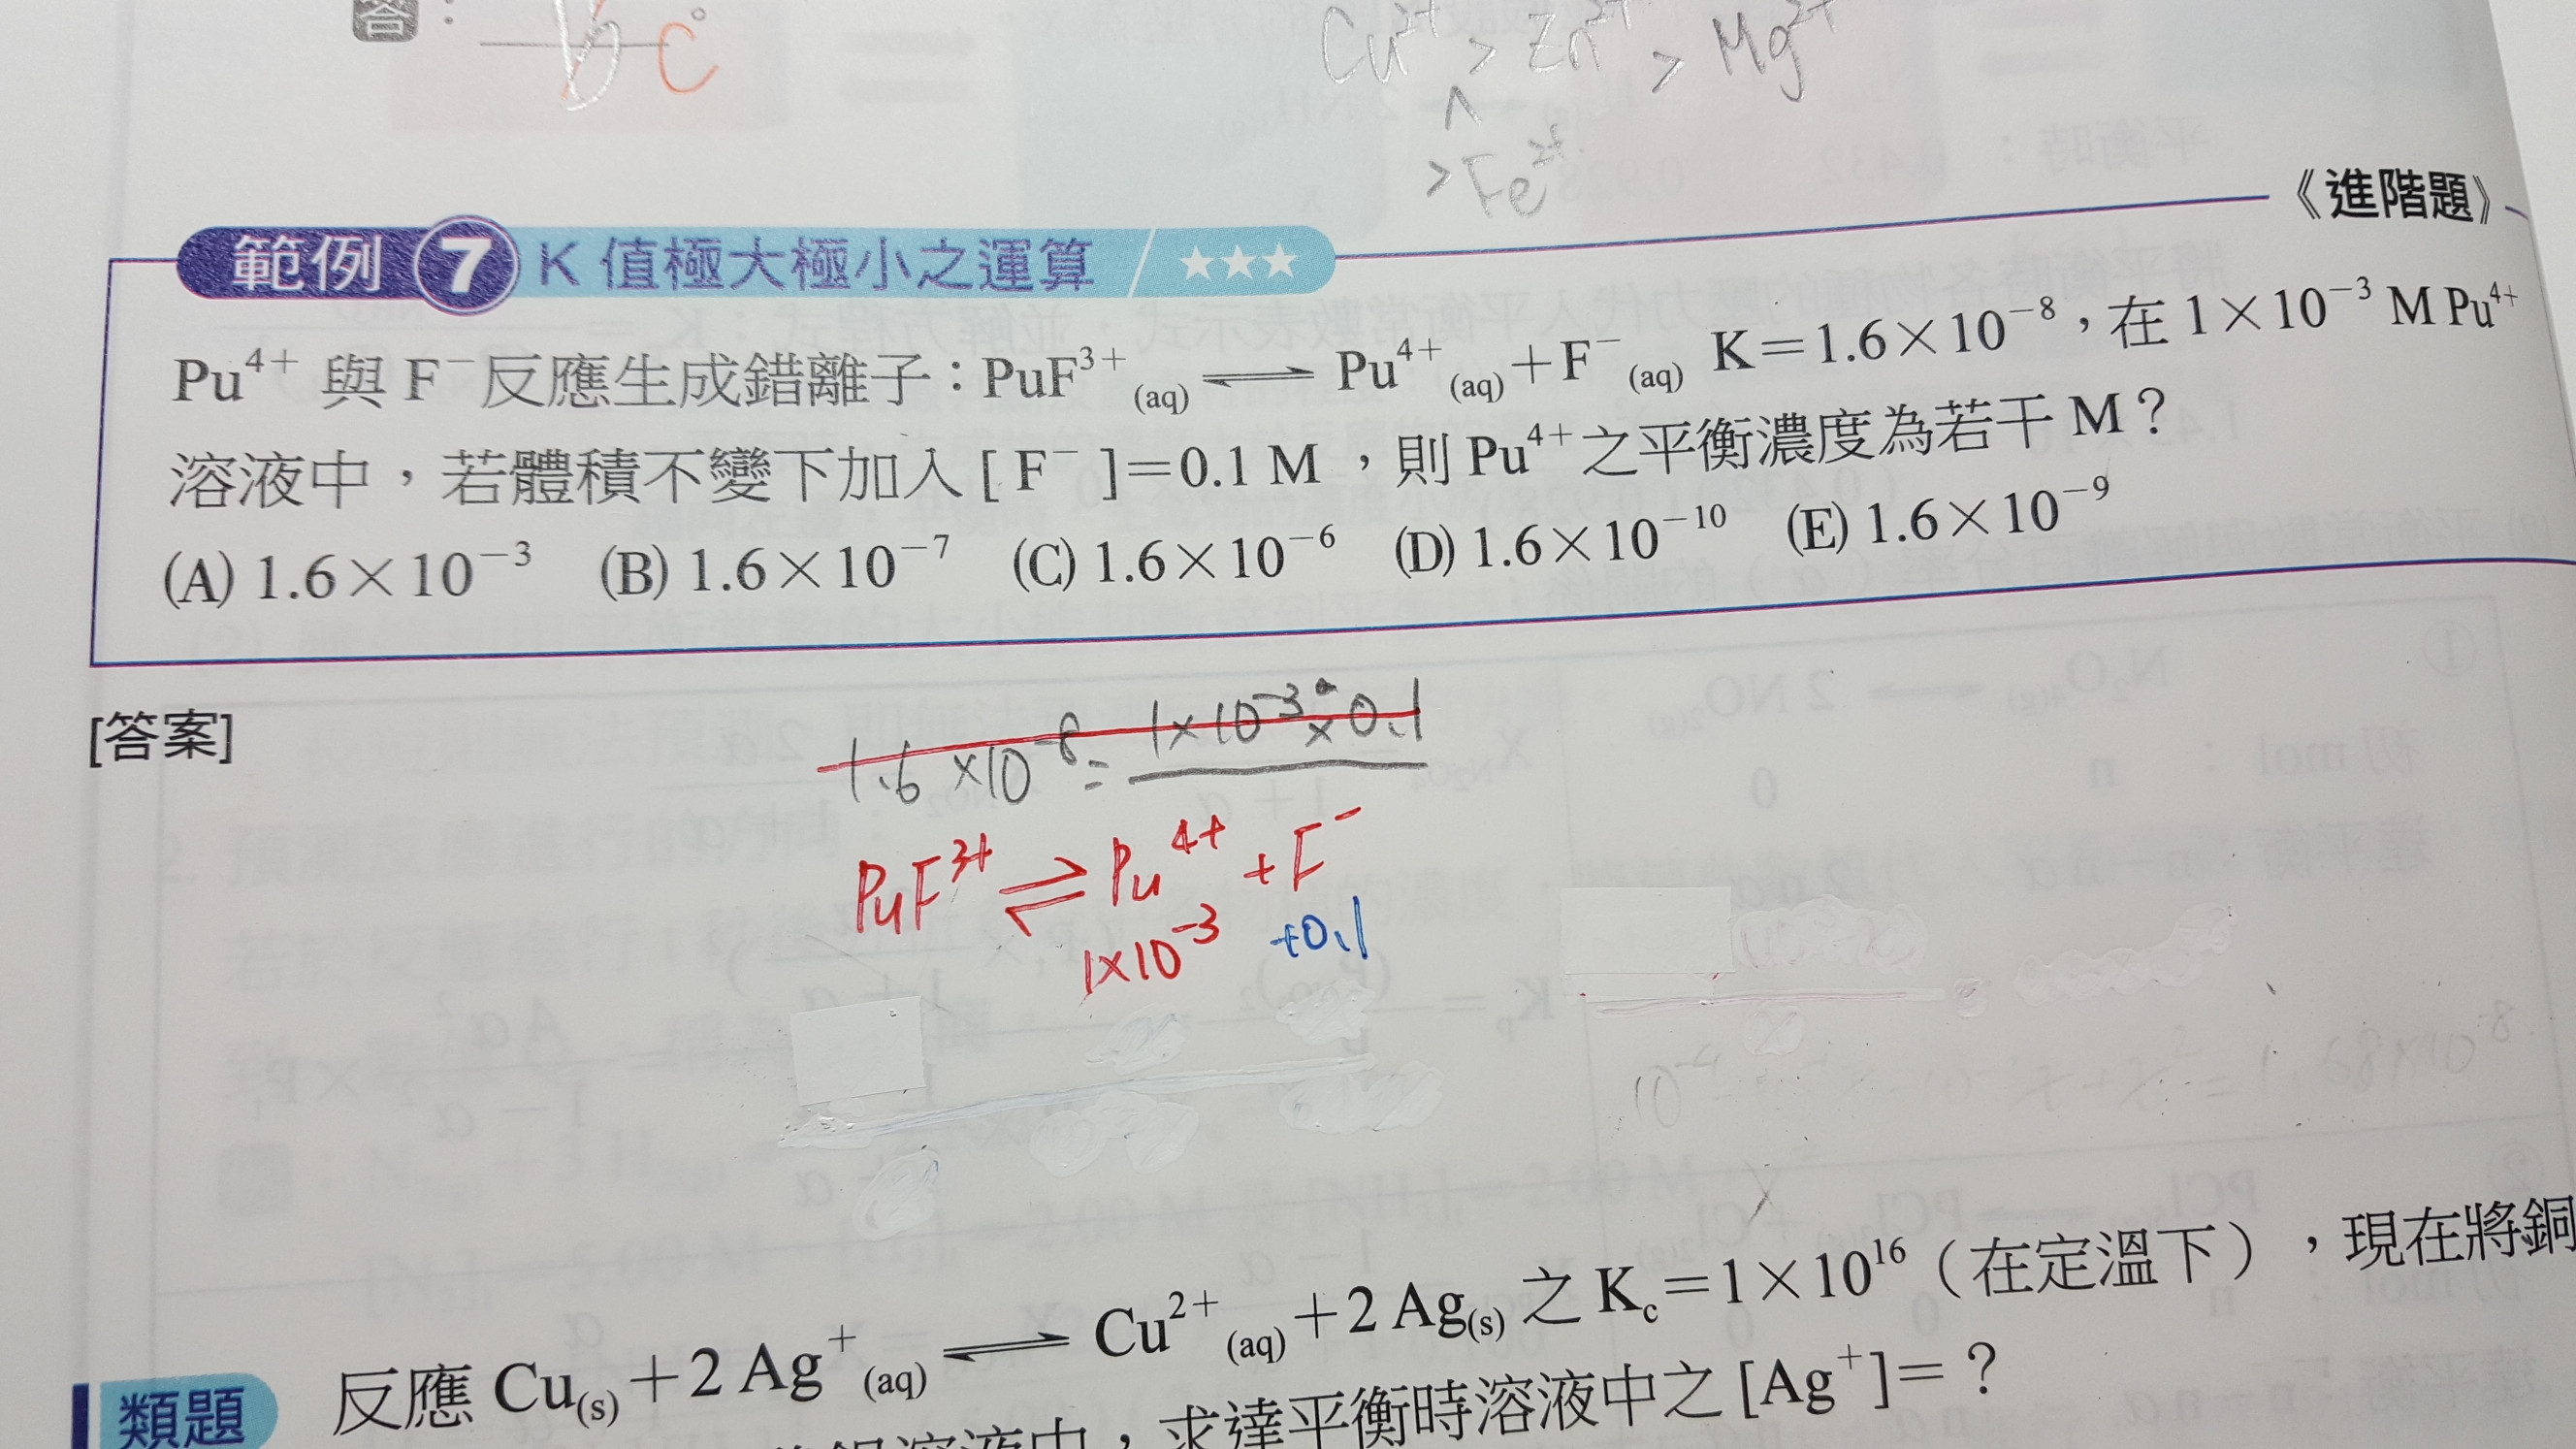 答：
b c
Cu²⁺ > Zn²⁺ > Mg²⁺
^
> Fe²⁺
《進階題》
範例 7 K 值極大極小之運算 ★★★
Pu⁴⁺ 與 F⁻ 反應生成錯離子：PuF³⁺(aq) ⇌ Pu⁴⁺(aq)＋F⁻(aq) K＝1.6×10⁻⁸，在 1×10⁻³ M Pu⁴⁺
溶液中，若體積不變下加入 [F⁻]＝0.1 M ，則 Pu⁴⁺之平衡濃度為若干 M？
(A) 1.6×10⁻³ (B) 1.6×10⁻⁷ (C) 1.6×10⁻⁶ (D) 1.6×10⁻¹⁰ (E) 1.6×10⁻⁹
[答案]
1.6×10⁻⁸ = 1×10⁻³×0.1
PuF³⁺ ⇌ Pu⁴⁺ + F⁻
1×10⁻³ +0.1
類題
反應 Cu(s)＋2 Ag⁺(aq) ⇌ Cu²⁺(aq)＋2 Ag(s) 之 Kc＝1×10¹⁶（在定溫下），現在將銅
求達平衡時溶液中之 [Ag⁺]＝？